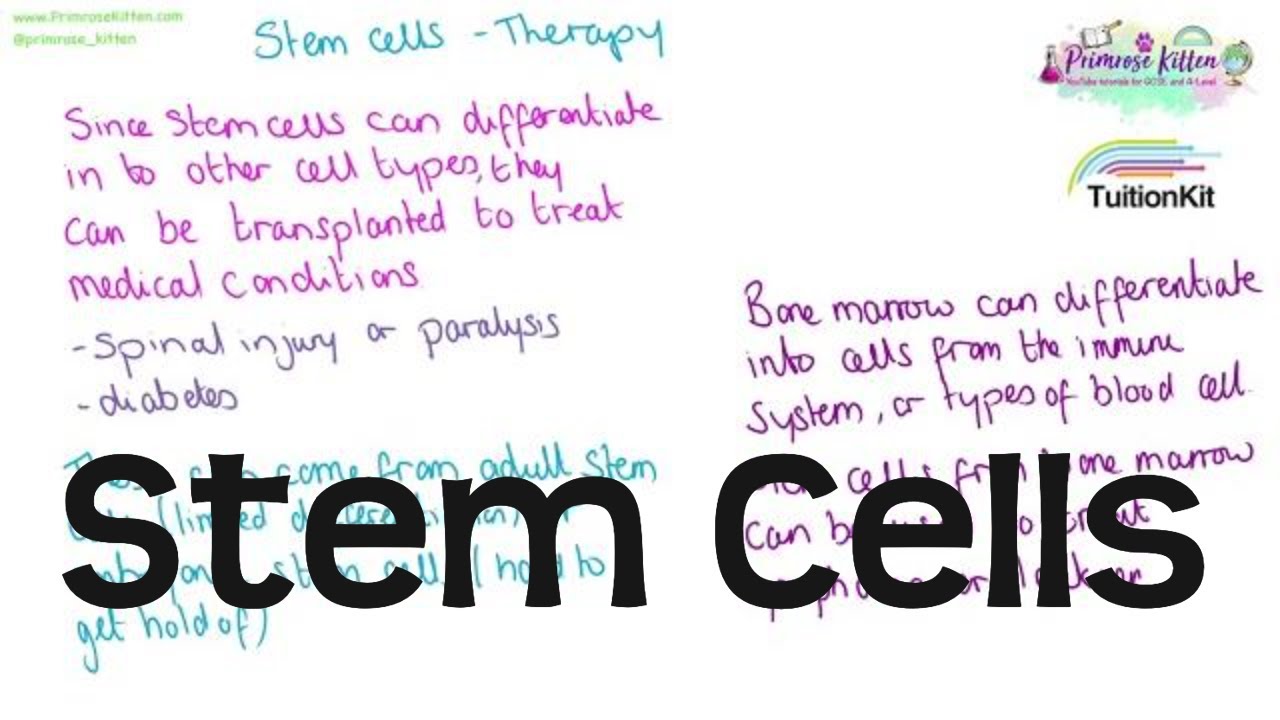 www.PrimroseKitten.com
@primrose_kitten
Stem cells - Therapy
Primrose Kitten
YouTube tutorials for GCSE and A-Level
TuitionKit
Since Stem cells can differentiate
in to other cell types, they
can be transplanted to treat
medical conditions
- Spinal injury or paralysis
- diabetes
come from adult stem
(limited
stem cells (hard to
get hold of)
Bone marrow can differentiate
into cells from the immune
System, or types of blood cell.
cells from bone marrow
can be
Stem Cells